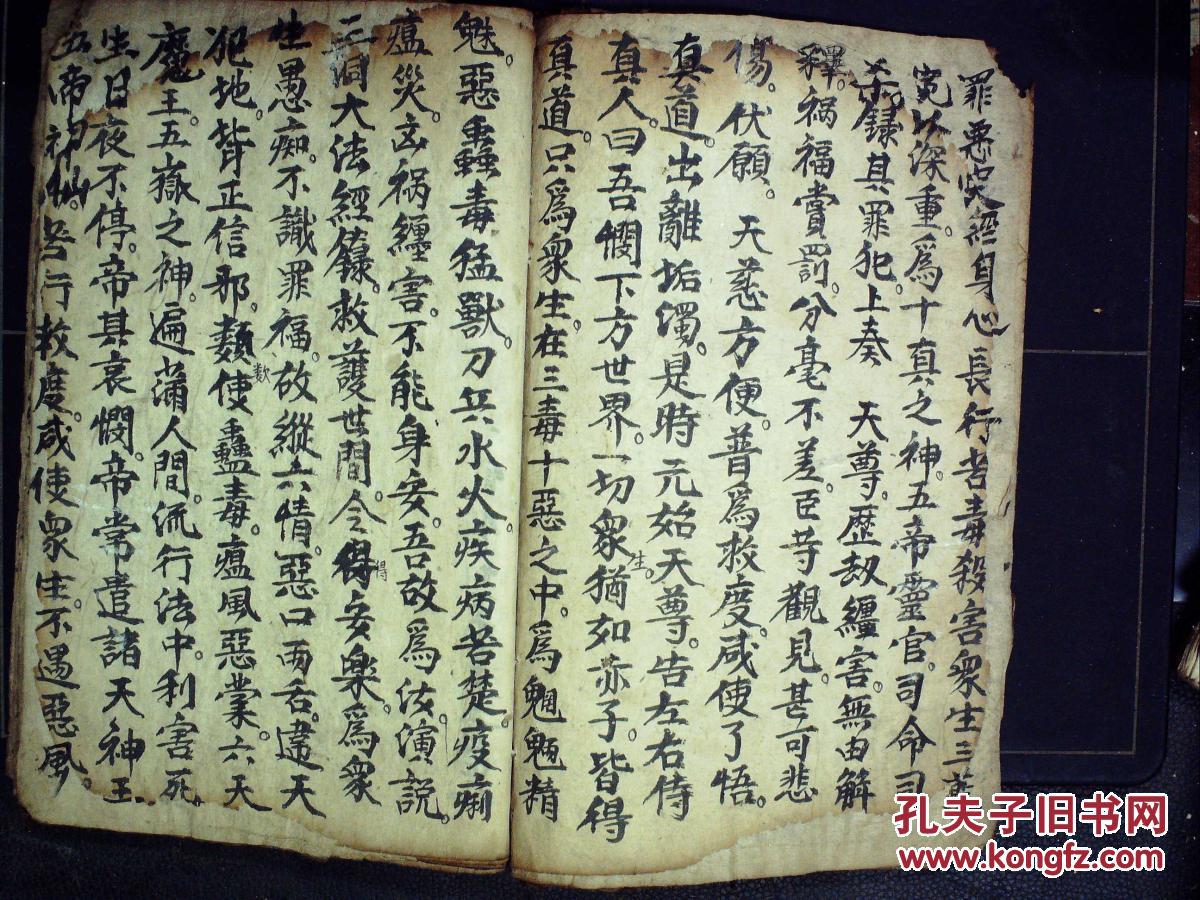 罪惡纏身心長行苦毒殺害衆生三
寃以深重。爲十真之神。五帝靈官。司命司
录錄其罪犯。上奏 天尊。歷刼纏害無由解
釋。禍福賞罰。分毫不差。臣等觀見。甚可悲
傷。伏願。 天慈方便。普爲救度。咸使了悟。
真道。出離垢濁。是時元始天尊。告左右侍
真人。曰吾憫下方世界。一切衆生。猶如赤子。皆得
真道。只爲衆生。在三毒十惡之中。爲魍魎精
魅。惡蟲毒猛獸。刀兵水火。疾病苦楚。疫痢
瘟災。灾禍纏害。不能身安。吾故爲汝。演説。
三洞大法經籙。救護世間。令得得安樂。爲衆
生愚痴。不識罪福。故縱六情。惡口兩舌。違天
犯地。皆正信邪。類歎使蠱毒。瘟風惡業。六天
魔王。五嶽之神。遍蒲人間。流行法中。利害死
生。日夜不停。帝其哀憫。帝常遣諸天神王
五帝神仙。苦行救度。咸使衆生。不遇惡風。
孔夫子旧书网
www.kongfz.com